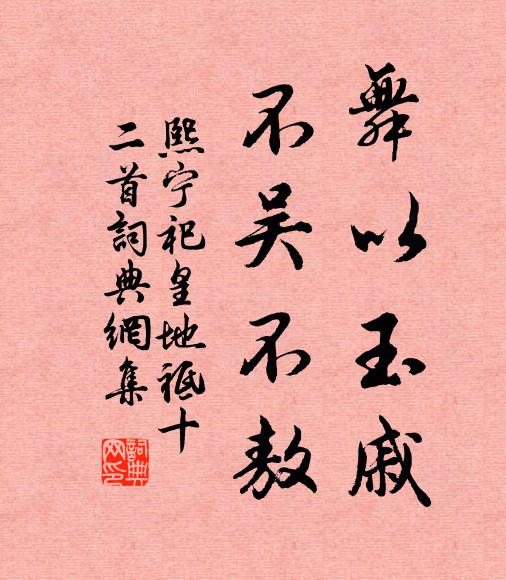 舞以玉戚
不吴不敖
熙宁祀皇地祗十
二首詞典網集
詞典网印